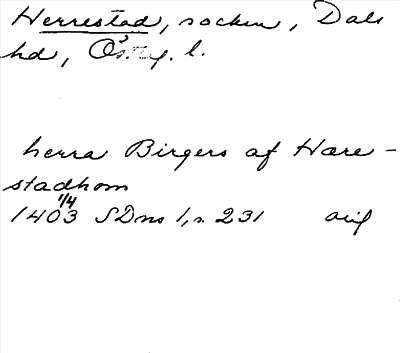 Herrestad, socken, Dals
hd, Östg. l.
herra Birgers af Hære-
stadhom
1403 1/4 SDns 1, s. 231 orig